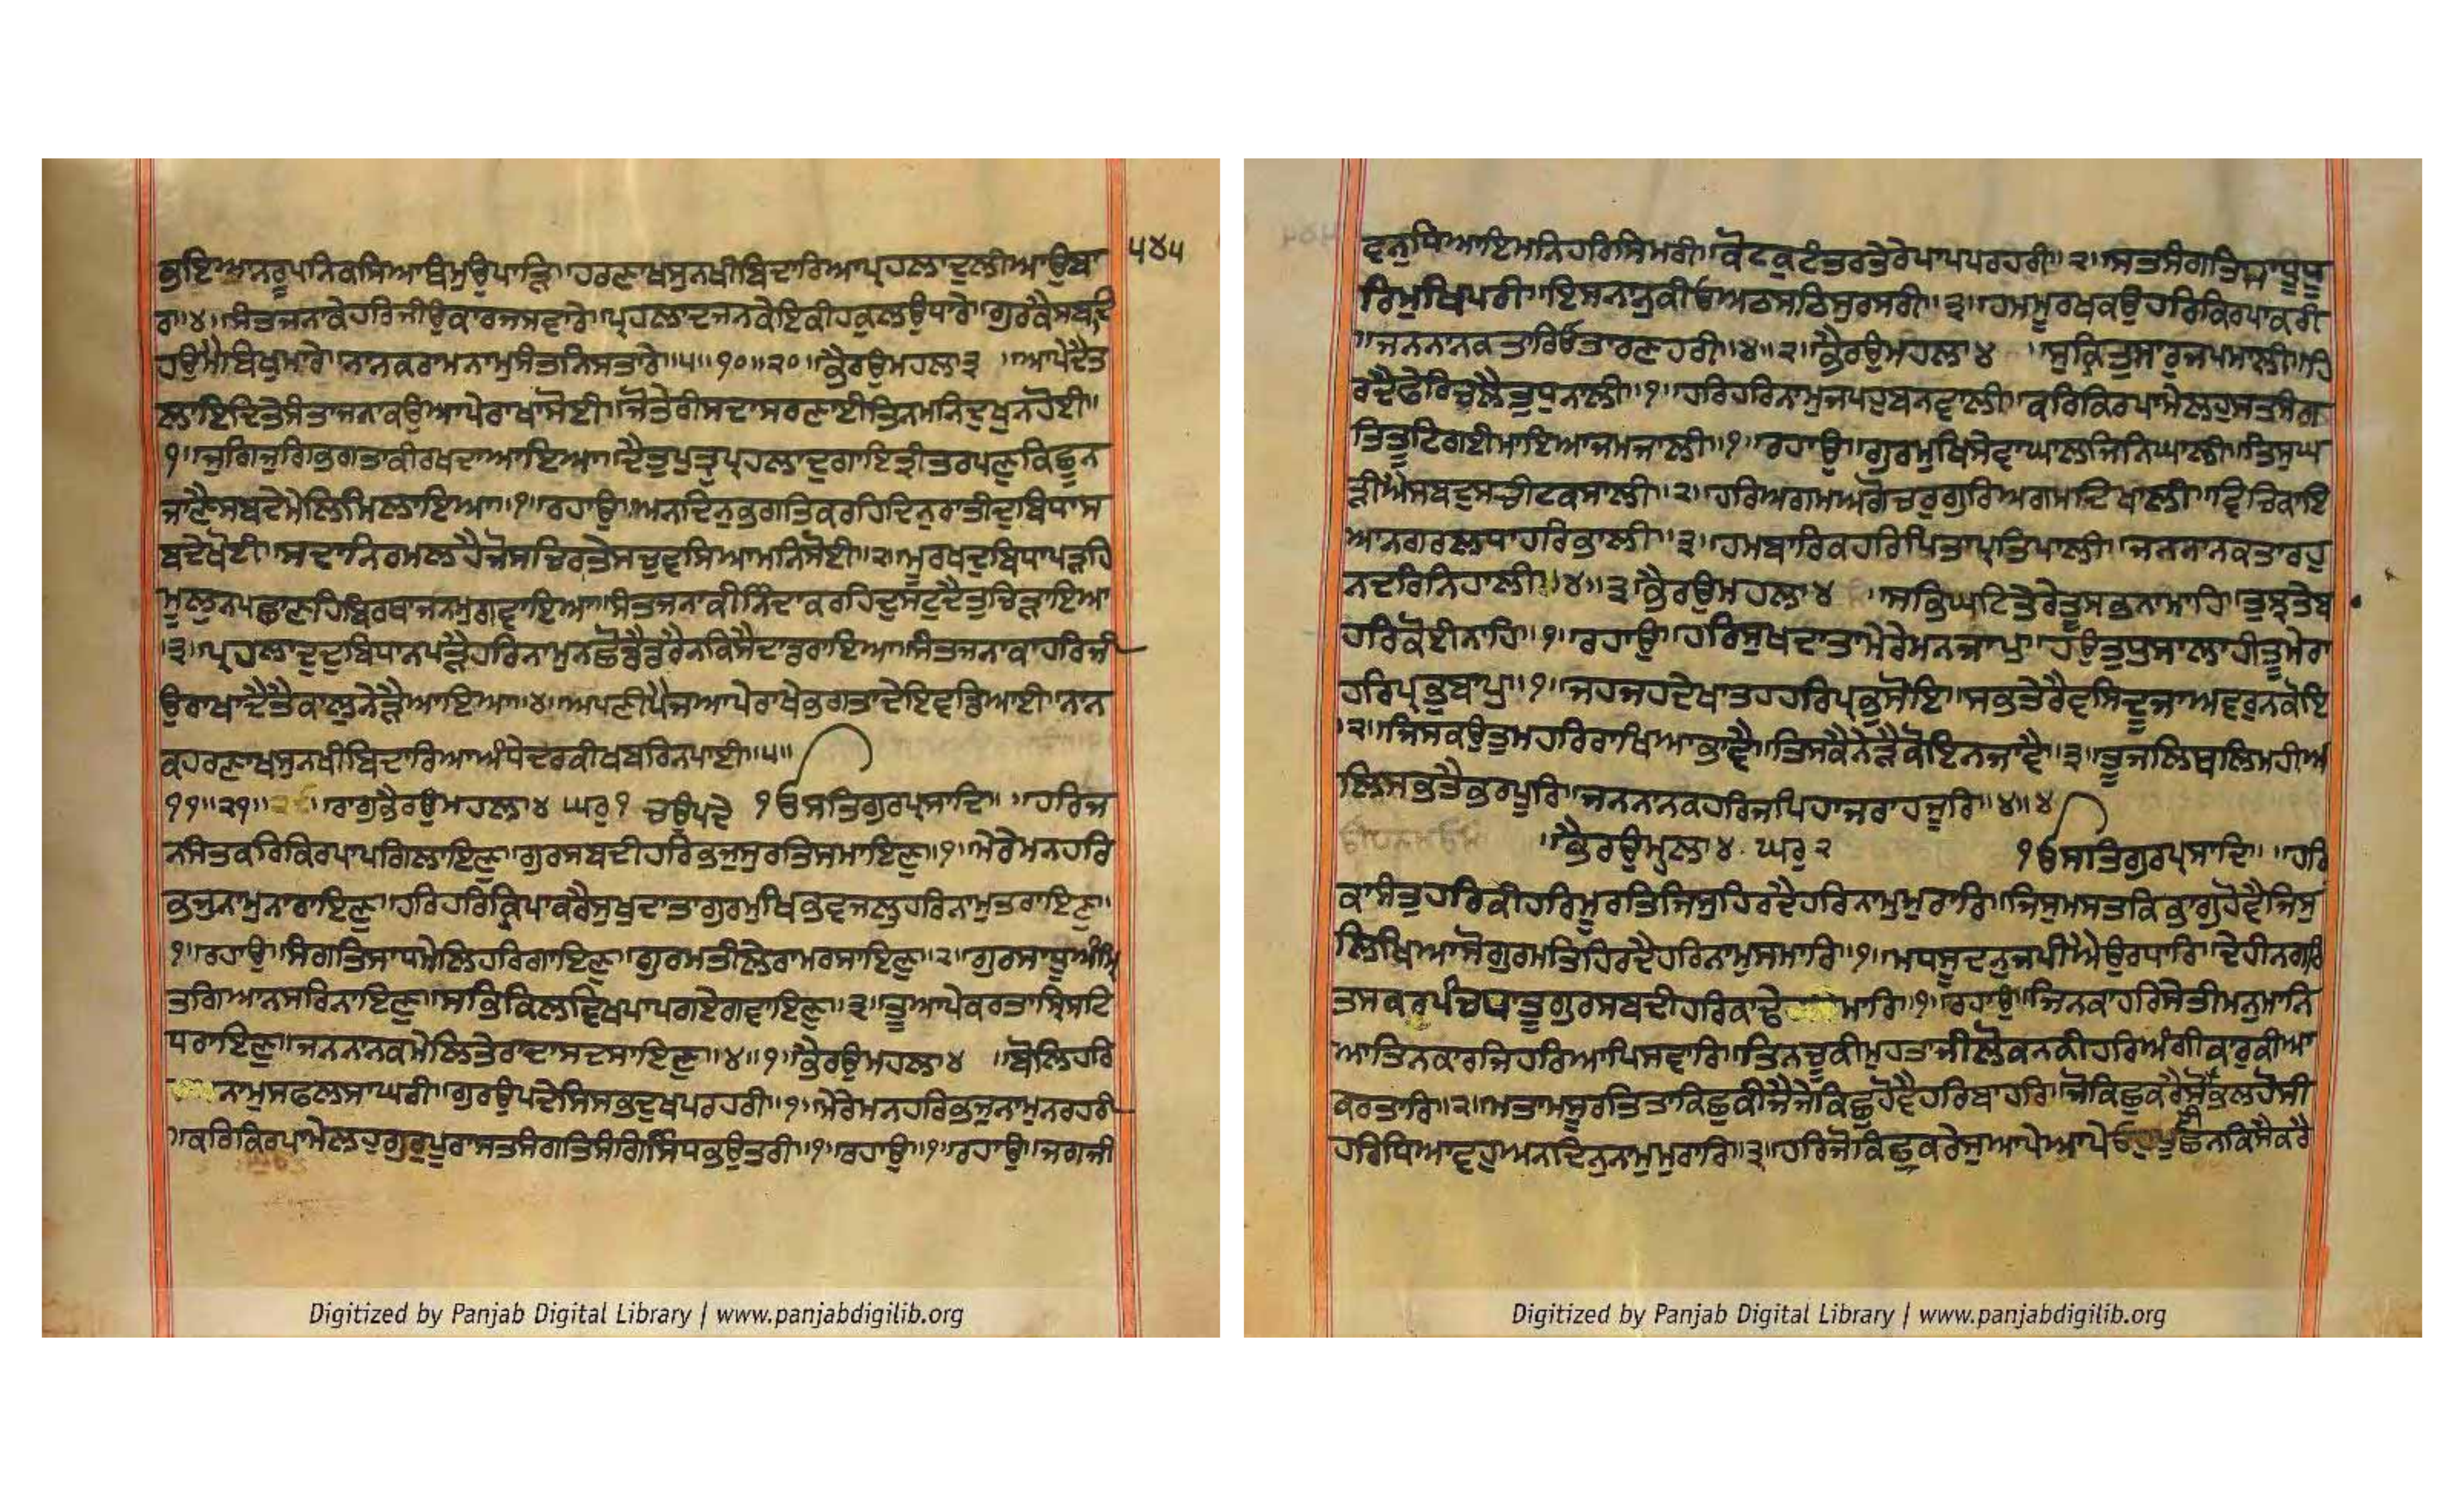 ੫੪੫
ਭਇਆਨਰੂਪਨਿਕਸਿਆਥੰਮੁਉਪਾੜਿ॥ਹਰਣਾਖਸੁਨਖੀਬਿਦਾਰਿਆਪ੍ਰਹਲਾਦੁਲੀਆਉਬਾ
ਰਾ॥੪॥ਸੰਤਜਨਾਕੇਹਰਿਜੀਉਕਾਰਜਸਵਾਰੇ॥ਪ੍ਰਹਲਾਦਜਨਕੇਇਕੀਹਕੁਲਉਧਾਰੇ॥ਗੁਰਕੈਸਬਦਿ
ਹਉਮੈਬਿਖੁਮਾਰੇ॥ਨਾਨਕਰਾਮਨਾਮੁਸੰਤਨਿਸਤਾਰੇ॥੫॥੧੦॥੨੦॥ਭੈਰਉਮਹਲਾ੩ ॥ਆਪੇਦੈਤ
ਲਾਇਦਿਤੇਸੰਤਾਜਨਾਕਉਆਪੇਰਾਖਾਸੋਈ॥ਜੋਤੇਰੀਸਦਾਸਰਣਾਈਤਿਨਮਨਿਦੁਖੁਨਹੋਈ॥
੧॥ਜੁਗਿਜੁਗਿਭਗਤਾਕੀਰਖਦਾਆਇਆ॥ਦੈਤੁਪੁਤ੍ਰੁਪ੍ਰਹਲਾਦੁਗਾਇਤ੍ਰੀਤਰਪਣੁਕਿਛੂਨ
ਜਾਣੈਸਬਦੇਮੇਲਿਮਿਲਾਇਆ॥੧॥ਰਹਾਉ॥ਅਨਦਿਨੁਭਗਤਿਕਰਹਿਦਿਨੁਰਾਤੀਦੁਬਿਧਾਸ
ਬਦੇਖੋਈ॥ਸਦਾਨਿਰਮਲਹੈਜੋਸਚਿਰਤੇਸਚੁਵਸਿਆਮਨਿਸੋਈ॥੨॥ਮੂਰਖਦੁਬਿਧਾਪੜਹਿ
ਮੂਲੁਨਪਛਾਣਹਿਬਿਰਥਾਜਨਮੁਗਵਾਇਆ॥ਸੰਤਜਨਾਕੀਨਿੰਦਾਕਰਹਿਦੁਸਟੁਦੈਤੁਚਿੜਾਇਆ
॥੩॥ਪ੍ਰਹਲਾਦੁਦੁਬਿਧਾਨਪੜੈਹਰਿਨਾਮੁਨਛੋਡੈਡਰੈਨਕਿਸੈਦਾਡਰਾਇਆ॥ਸੰਤਜਨਾਕਾਹਰਿਜੀ
ਉਰਾਖਾਦੈਤੈਕਾਲੁਨੇੜੈਆਇਆ॥੪॥ਅਪਣੀਪੈਜਆਪੇਰਾਖੇਭਗਤਾਦੇਇਵਡਿਆਈ॥ਨਾਨ
ਕਹਰਣਾਖਸੁਨਖੀਬਿਦਾਰਿਆਅੰਧੇਦਰਕੀਖਬਰਿਨਪਾਈ॥੫॥
੧੧॥੨੧॥ ॥ਰਾਗੁਭੈਰਉਮਹਲਾ੪ ਘਰੁ੧ ਚਉਪਦੇ ੴਸਤਿਗੁਰਪ੍ਰਸਾਦਿ॥ ॥ਹਰਿਜ
ਨਸੰਤਕਰਿਕਿਰਪਾਪਗਿਲਾਇਣੁ॥ਗੁਰਸਬਦੀਹਰਿਭਜੁਸੁਰਤਿਸਮਾਇਣੁ॥੧॥ਮੇਰੇਮਨਹਰਿ
ਭਜੁਨਾਮੁਨਾਰਾਇਣੁ॥ਹਰਿਹਰਿਕ੍ਰਿਪਾਕਰੈਸੁਖਦਾਤਾਗੁਰਮੁਖਿਭਵਜਲੁਹਰਿਨਾਮੁਤਰਾਇਣੁ॥
੧॥ਰਹਾਉ॥ਸੰਗਤਿਸਾਧਮੇਲਿਹਰਿਗਾਇਣੁ॥ਗੁਰਮਤੀਲੇਰਾਮਰਸਾਇਣੁ॥੨॥ਗੁਰਸਾਧੂਅੰਮ੍ਰਿ
ਤਗਿਆਨਸਰਿਨਾਇਣੁ॥ਸਭਿਕਿਲਵਿਖਪਾਪਗਏਗਵਾਇਣੁ॥੩॥ਤੂਆਪੇਕਰਤਾਸ੍ਰਿਸਟਿ
ਧਰਾਇਣੁ॥ਜਨਨਾਨਕਮੇਲਿਤੇਰਾਦਾਸਦਸਾਇਣੁ॥੪॥੧॥ਭੈਰਉਮਹਲਾ੪ ॥ਬੋਲਿਹਰਿ
ਨਾਮੁਸਫਲਸਾਘਰੀ॥ਗੁਰਉਪਦੇਸਿਸਭਦੁਖਪਰਹਰੀ॥੧॥ਮੇਰੇਮਨਹਰਿਭਜੁਨਾਮੁਨਰਹਰੀ
॥ਕਰਿਕਿਰਪਾਮੇਲਹੁਗੁਰੁਪੂਰਾਸਤਸੰਗਤਿਸੰਗਿਸਿੰਧਭਉਤਰੀ॥੧॥ਰਹਾਉ॥੧॥ਰਹਾਉ॥ਜਗਜੀ
Digitized by Panjab Digital Library | www.panjabdigilib.org
ਵਨੁਧਿਆਇਮਨਿਹਰਿਸਿਮਰੀ॥ਕੋਟਕੁਟੰਤਰਤੇਰੇਪਾਪਪਰਹਰੀ॥੨॥ਸਤਸੰਗਤਿਸਾਧਧੂ
ਰਿਮੁਖਿਪਰੀ॥ਇਸਨਾਨੁਕੀਓਅਠਸਠਿਸੁਰਸਰੀ॥੩॥ਹਮਮੂਰਖਕਉਹਰਿਕਿਰਪਾਕਰੀ
॥ਜਨਨਾਨਕਤਾਰਿਓਤਾਰਣਹਰੀ॥੪॥੨॥ਭੈਰਉਮਹਲਾ੪ ॥ਸੁਕ੍ਰਿਤੁਸਾਰੁਜਪਮਾਲੀ॥ਹਿ
ਰਦੈਫੇਰਿਚਲੈਤੁਧੁਨਾਲੀ॥੧॥ਹਰਿਹਰਿਨਾਮੁਜਪਹੁਬਨਵਾਲੀ॥ਕਰਿਕਿਰਪਾਮੇਲਹੁਸਤਸੰਗ
ਤਿਤੂਟਿਗਈਮਾਇਆਜਮਜਾਲੀ॥੧॥ਰਹਾਉ॥ਗੁਰਮੁਖਿਸੇਵਾਘਾਲਜਿਨਿਘਾਲੀ॥ਤਿਸੁਘ
ੜੀਐਸਬਦੁਸਚੀਟਕਸਾਲੀ॥੨॥ਹਰਿਅਗਮਅਗੋਚਰੁਗੁਰਿਅਗਮਦਿਖਾਲੀ॥ਵਿਚਿਕਾਇ
ਆਨਗਰਲਧਾਹਰਿਭਾਲੀ॥੩॥ਹਮਬਾਰਿਕਹਰਿਪਿਤਾਪ੍ਰਤਿਪਾਲੀ॥ਜਨਨਾਨਕਤਾਰਹੁ
ਨਦਰਿਨਿਹਾਲੀ॥੪॥੩॥ਭੈਰਉਮਹਲਾ੪ ॥ਸਭਿਘਟਿਤੇਰੇਤੂਸਭਨਾਮਾਹਿ॥ਤੁਝਤੇਬ
ਹਰਿਕੋਈਨਾਹਿ॥੧॥ਰਹਾਉ॥ਹਰਿਸੁਖਦਾਤਾਮੇਰੇਮਨਜਾਪੁ॥ਹਉਤੁਧੁਸਾਲਾਹੀਤੂਮੇਰਾ
ਹਰਿਪ੍ਰਭੁਬਾਪੁ॥੧॥ਜਹਜਹਦੇਖਾਤਹਹਰਿਪ੍ਰਭੁਸੋਇ॥ਸਭਤੇਰੈਵਸਿਦੂਜਾਅਵਰੁਨਕੋਇ
॥੨॥ਜਿਸਕਉਤੁਮਹਰਿਰਾਖਿਆਭਾਵੈ॥ਤਿਸਕੈਨੇੜੈਕੋਇਨਜਾਵੈ॥੩॥ਤੂਜਲਿਥਲਿਮਹੀਅ
ਲਿਸਭਤੈਭਰਪੂਰਿ॥ਜਨਨਾਨਕਹਰਿਜਪਿਹਾਜਰਾਹਜੂਰਿ॥੪॥੪
॥ਭੈਰਉਮਃਲਾ੪ ਘਰੁ੨ ੴਸਤਿਗੁਰਪ੍ਰਸਾਦਿ॥ ॥ਹਰਿ
ਕਾਸੰਤੁਹਰਿਕੀਹਰਿਮੂਰਤਿਜਿਸੁਹਿਰਦੈਹਰਿਨਾਮੁਮੁਰਾਰਿ॥ਜਿਸੁਮਸਤਕਿਭਾਗੁਹੋਵੈਜਿਸੁ
ਲਿਖਿਆਸੋਗੁਰਮਤਿਹਿਰਦੈਹਰਿਨਾਮੁਸਮਾਰਿ॥੧॥ਮਧਸੂਦਨੁਜਪੀਐਉਰਧਾਰਿ॥ਦੇਹੀਨਗਰਿ
ਤਸਕਰਪੰਚਧਾਤੂਗੁਰਸਬਦੀਹਰਿਕਾਢੇ ਮਾਰਿ॥੧॥ਰਹਾਉ॥ਜਿਨਕਾਹਰਿਸੇਤੀਮਨੁਮਾਨਿ
ਆਤਿਨਕਾਰਜਿਹਰਿਆਪਿਸਵਾਰਿ॥ਤਿਨਚੂਕੀਮੁਹਤਾਜੀਲੋਕਨਕੀਹਰਿਅੰਗੀਕਾਰੁਕੀਆ
ਕਰਤਾਰਿ॥੨॥ਮਤਾਮਸੂਰਤਿਤਾਕਿਛੁਕੀਜੈਜੇਕਿਛੁਹੋਵੈਹਰਿਬਾਹਰਿ॥ਜੋਕਿਛੁਕਰੈਸੋਈਭਲਹੋਸੀ
ਹਰਿਧਿਆਵਹੁਅਨਦਿਨੁਨਾਮੁਮੁਰਾਰਿ॥੩॥ਹਰਿਜੋਕਿਛੁਕਰੇਸੁਆਪੇਆਪੇਓਹੁਪੂਛਿਨਕਿਸੈਕਰੈ
Digitized by Panjab Digital Library | www.panjabdigilib.org